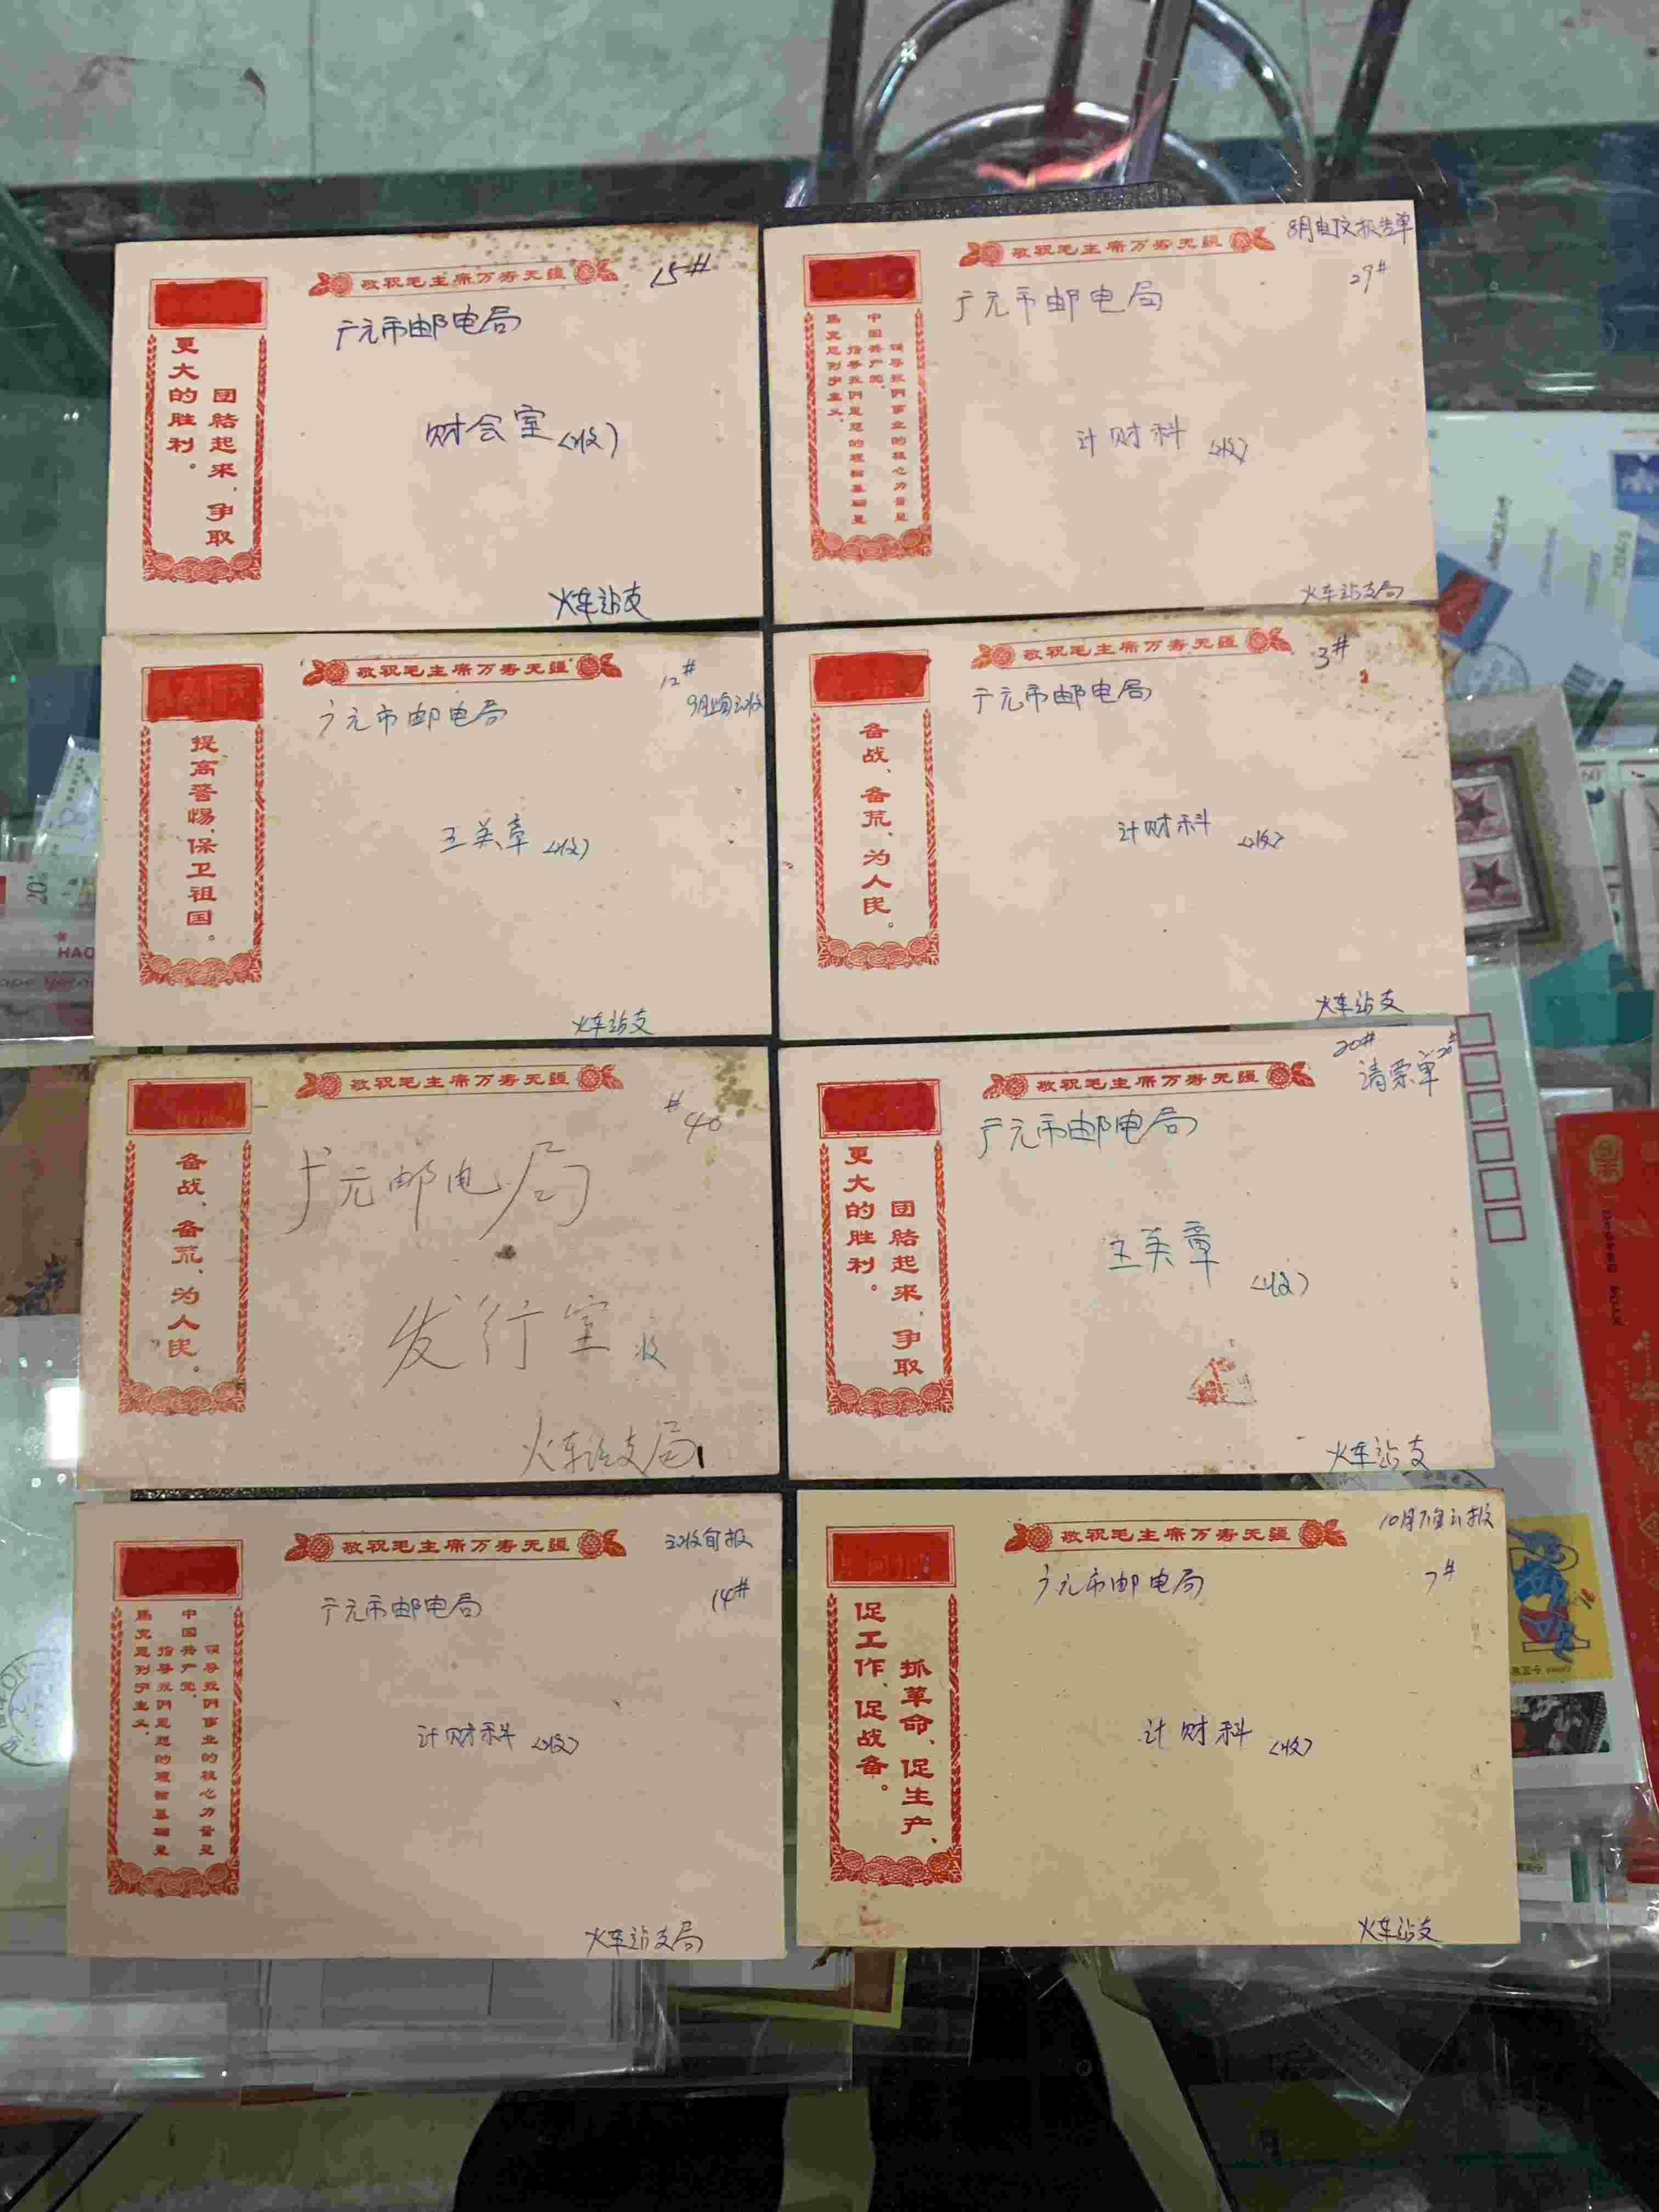 敬祝毛主席万寿无疆
15#
广元市邮电局
更大的胜利。
团結起来,争取
财会室(收)
火车站支
8月电汶报告单
敬祝毛主席万寿无疆
29#
广元市邮电局
中国共产党。
領导我們事业的核心力量是
指导我們思想的理論基础是
馬克思列宁主义。
计财科(收)
火车站支局
敬祝毛主席万寿无疆
12#
广元市邮电局
提高警惕,保卫祖国。
王关章(收)
火车站支
敬祝毛主席万寿无疆
3#
广元市邮电局
备战、备荒、为人民。
计财科(收)
火车站支
敬祝毛主席万寿无疆
#40
广元邮电局
备战、备荒、为人民。
发行室 收
火车站支局
20#
敬祝毛主席万寿无疆
请票单
广元市邮电局
更大的胜利。
团結起来,争取
王关章(收)
火车站支
敬祝毛主席万寿无疆
14#
广元市邮电局
中国共产党。
領导我們事业的核心力量是
指导我們思想的理論基础是
馬克思列宁主义。
计财科(收)
火车站支局
敬祝毛主席万寿无疆
7#
广元市邮电局
抓革命、促生产、
促工作、促战备。
计财科(收)
火车站支
HAO